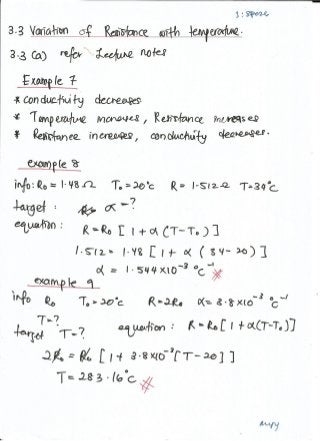 3.3 Variation of Resistance with temperature.
3.3 (a) refer Lecture notes
Example 7
* conductivity decreases
* Temperature increases, Resistance increases
* Resistance increases, conductivity decreases.
example 8
info: R₀ = 1.48 Ω T₀ = 20°C R = 1.512 Ω T = 34°C
target : α = ?
equation : R = R₀ [ 1 + α (T - T₀) ]
1.512 = 1.48 [ 1 + α ( 34 - 20) ]
α = 1.544 x10⁻³ °C⁻¹
example 9
info R₀ T₀ = 20°C R = 2R₀ α = 3.8 x 10⁻³ °C⁻¹
T = ?
target T = ? equation : R = R₀ [ 1 + α(T-T₀)]
2R₀ = R₀ [ 1 + 3.8 x10⁻³ (T - 20) ]
T = 283.16°C